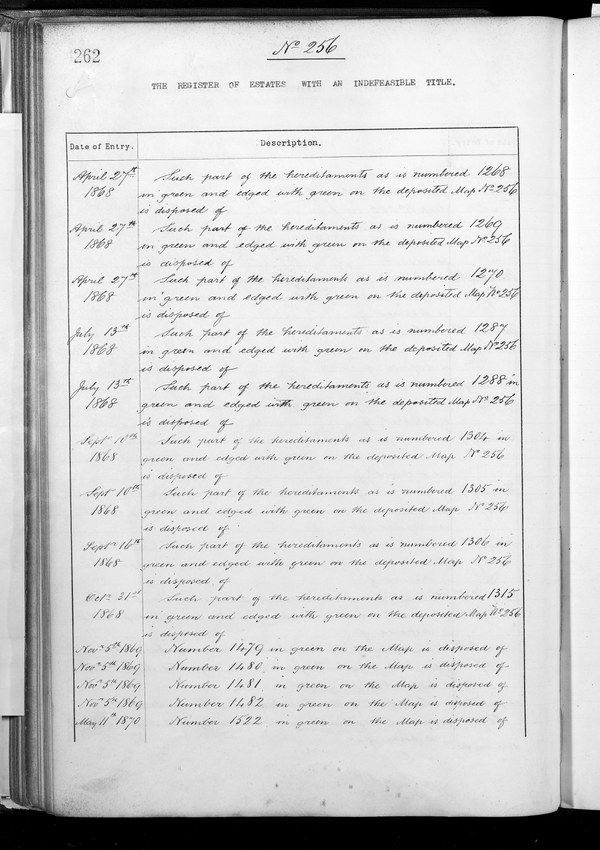 262
No 256
THE REGISTER OF ESTATES WITH AN INDEFEASIBLE TITLE.
Date of Entry. Description.
April 27th Such part of the hereditaments as is numbered 1268
1868 in green and edged with green on the deposited Map No 256
is disposed of
April 27th Such part of the hereditaments as is numbered 1269
1868 in green and edged with green on the deposited Map No 256
is disposed of
April 27th Such part of the hereditaments as is numbered 1270
1868 in green and edged with green on the deposited Map No 256
is disposed of
July 13th Such part of the hereditaments as is numbered 1287
1868 in green and edged with green on the deposited Map No 256
is disposed of
July 13th Such part of the hereditaments as is numbered 1288 in
1868 green and edged with green on the deposited Map No 256
is disposed of
Sept 10th Such part of the hereditaments as is numbered 1304 in
1868 green and edged with green on the deposited Map No 256
is disposed of
Sept 10th Such part of the hereditaments as is numbered 1305 in
1868 green and edged with green on the deposited Map No 256
is disposed of
Sept 16th Such part of the hereditaments as is numbered 1306 in
1868 green and edged with green on the deposited Map No 256
is disposed of
Octr 31st Such part of the hereditaments as is numbered 1315
1868 in green and edged with green on the deposited Map No 256
is disposed of
Novr 5th 1869 Number 1479 in green on the Map is disposed of
Novr 5th 1869 Number 1480 in green on the Map is disposed of
Novr 5th 1869 Number 1481 in green on the Map is disposed of
Novr 5th 1869 Number 1482 in green on the Map is disposed of
May 11th 1870 Number 1522 in green on the Map is disposed of